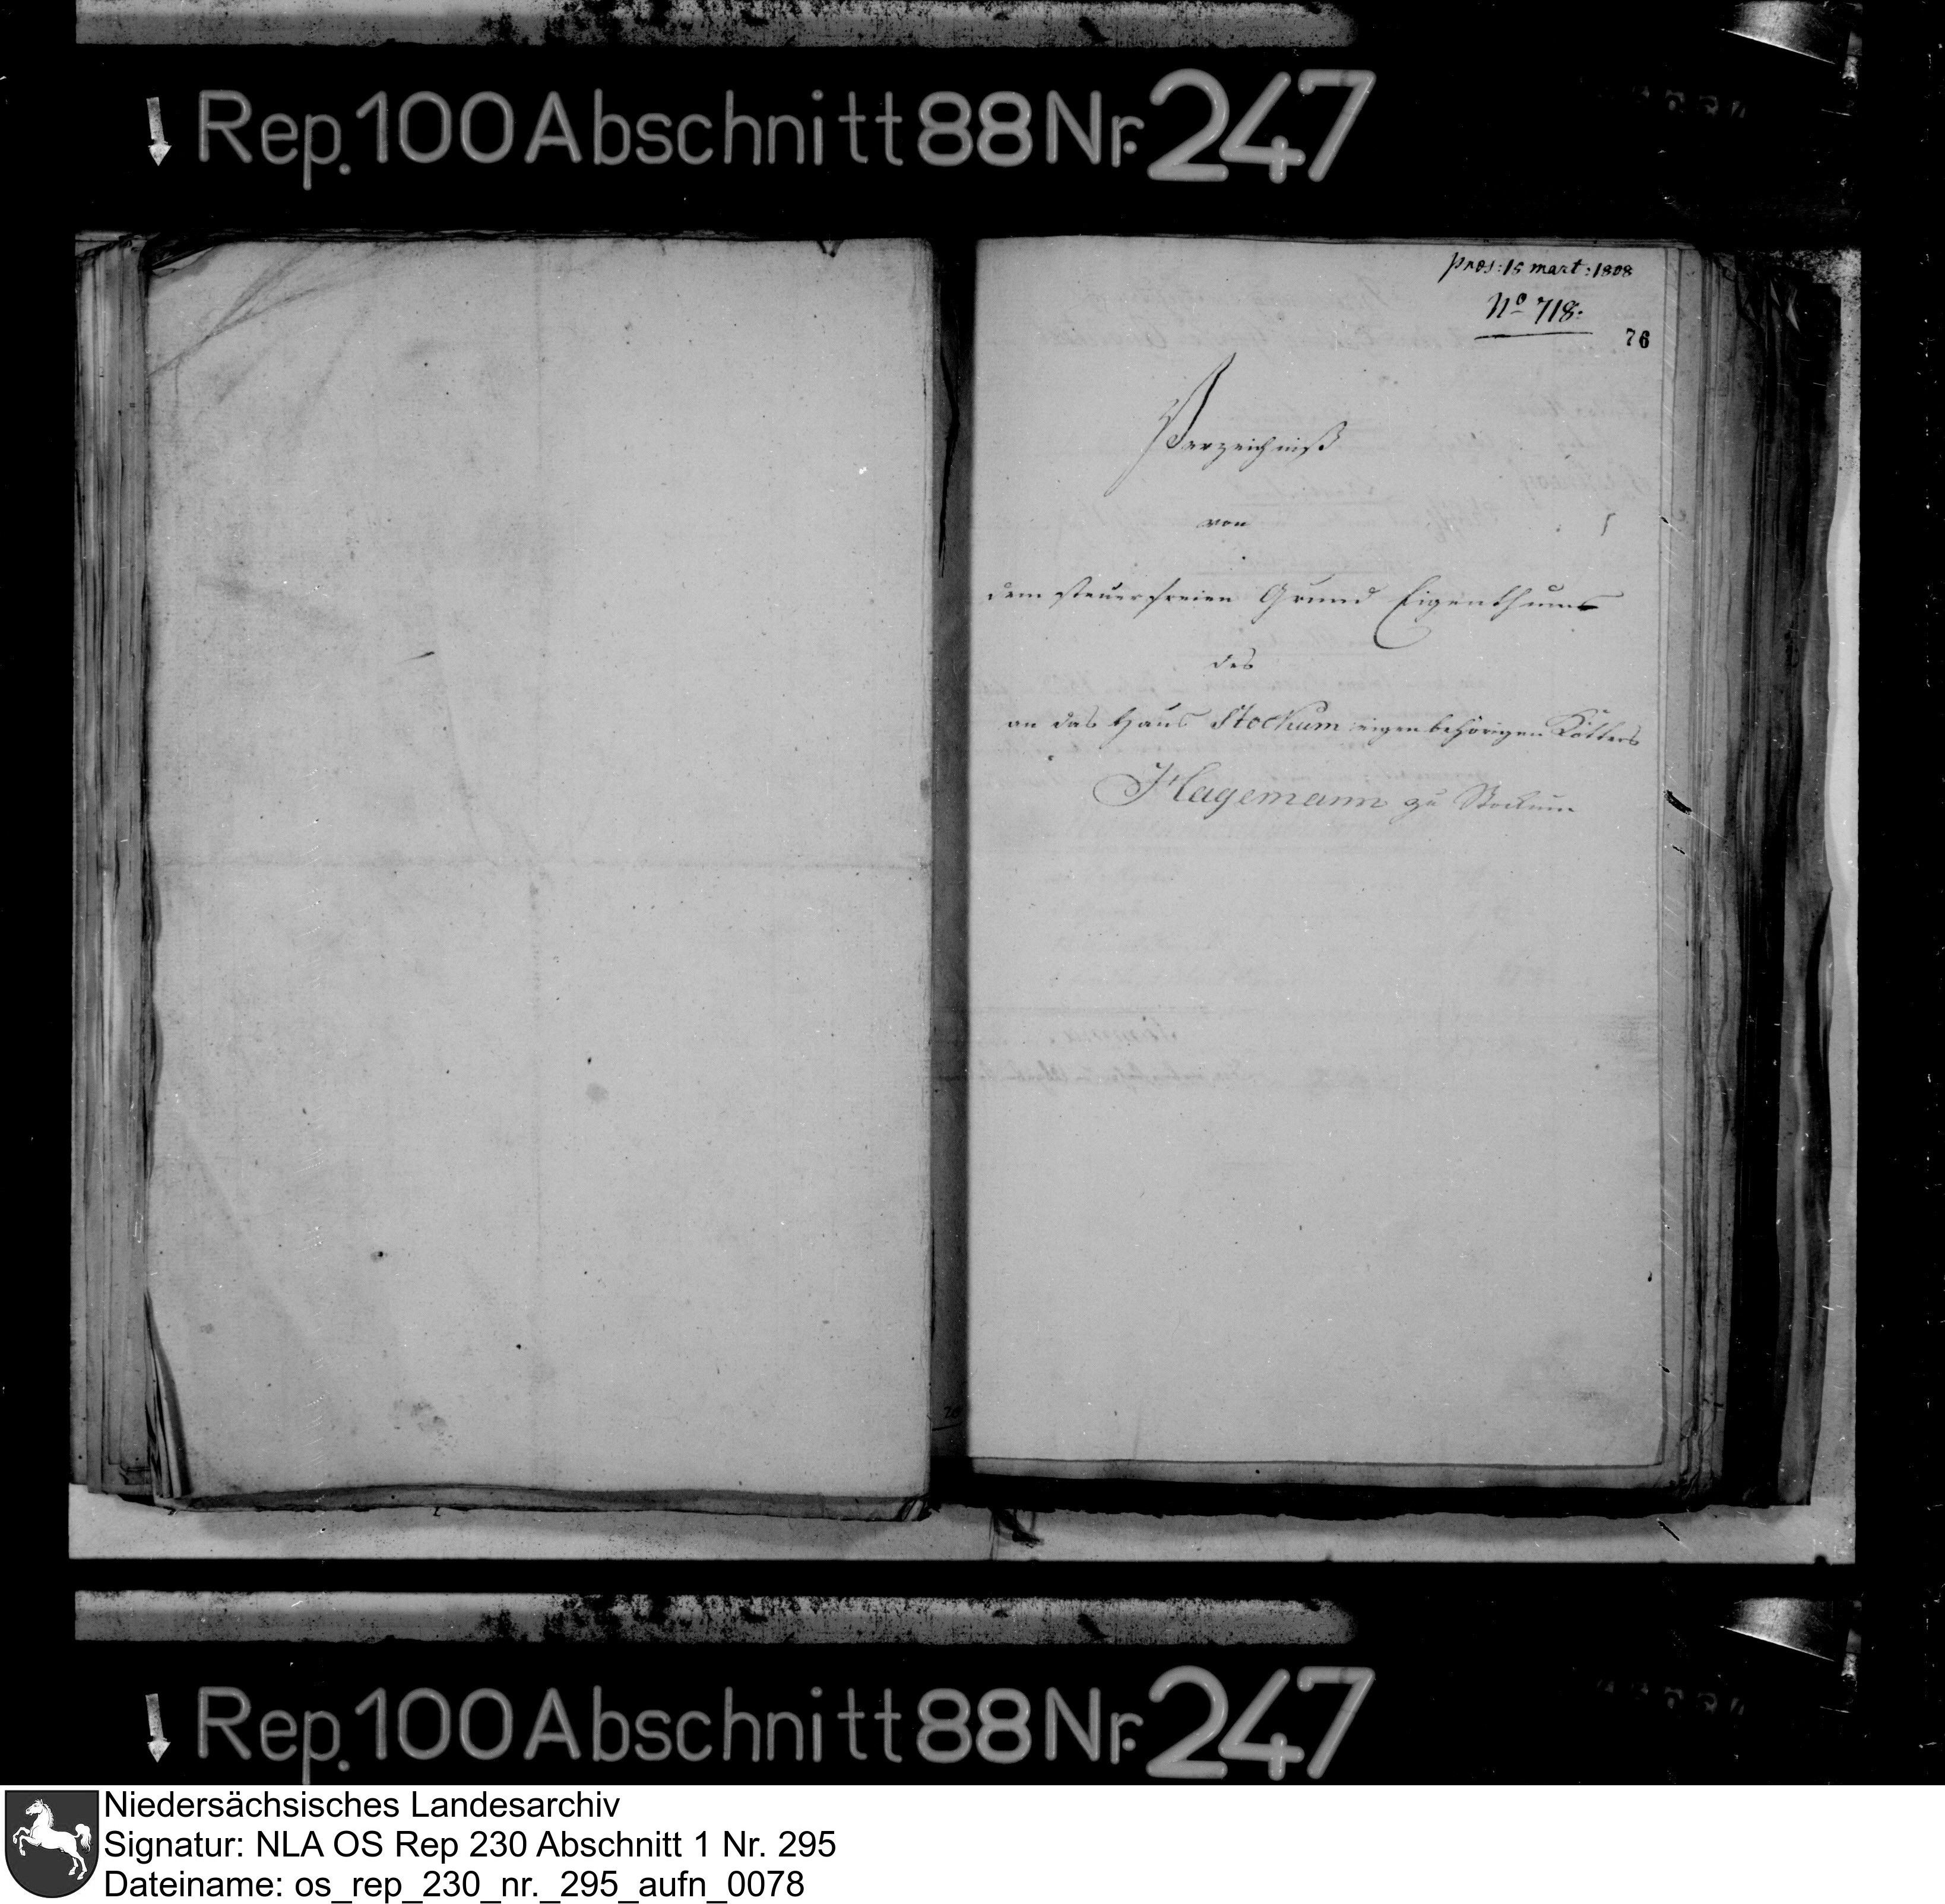 Rep. 100 Abschnitt 88 Nr. 247
pras: 15 mart: 1808
No 718.
76
Verzeichniß
von
dem steuerfreien Grund Eigenthums
des
an das Haus Stockum eigenbehörigen Kötters
Hagemann zu Stockum
Rep. 100 Abschnitt 88 Nr. 247
Niedersächsisches Landesarchiv
Signatur: NLA OS Rep 230 Abschnitt 1 Nr. 295
Dateiname: os_rep_230_nr._295_aufn_0078